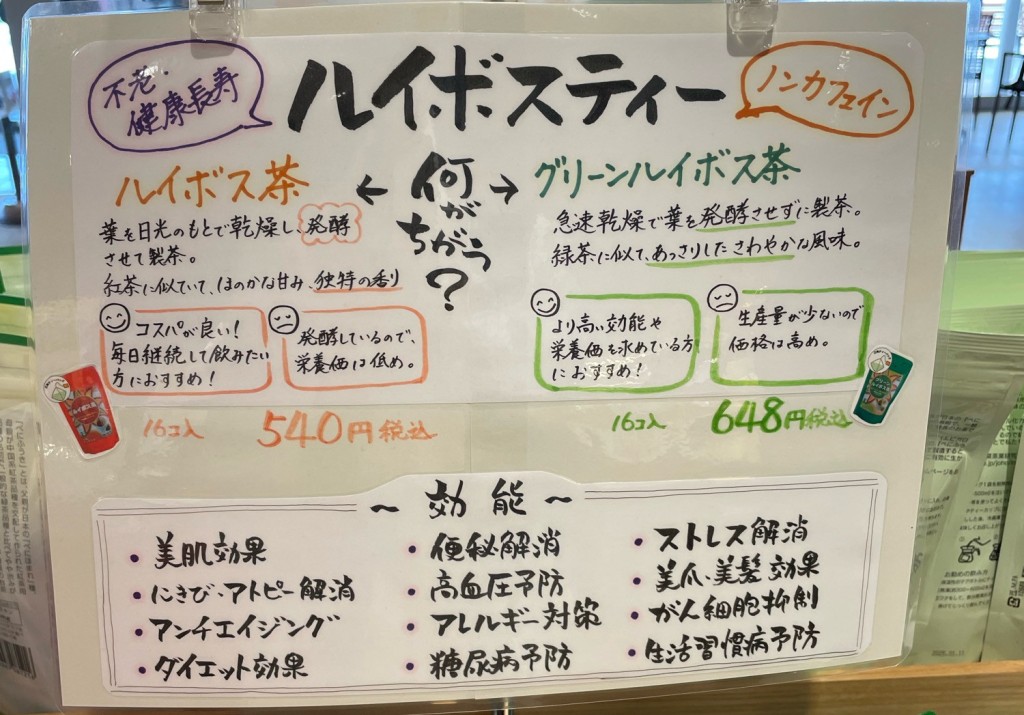 不老・
健康長寿
ルイボスティー
ノンカフェイン
ルイボス茶
← 何がちがう? →
グリーンルイボス茶
葉を日光のもとで乾燥し、発酵
させて製茶。
紅茶に似ていて、ほのかな甘み、独特の香り
コスパが良い!
毎日継続して飲みたい
方におすすめ!
発酵しているので、
栄養価は低め。
16コ入 540円税込
急速乾燥で葉を発酵させずに製茶。
緑茶に似て、あっさりしたさわやかな風味。
より高い効能や
栄養価を求めている方
におすすめ!
生産量が少ないので
価格は高め。
16コ入 648円税込
~効能~
・美肌効果
・にきび・アトピー解消
・アンチエイジング
・ダイエット効果
・便秘解消
・高血圧予防
・アレルギー対策
・糖尿病予防
・ストレス解消
・美爪、美髪効果
・がん細胞抑制
・生活習慣病予防